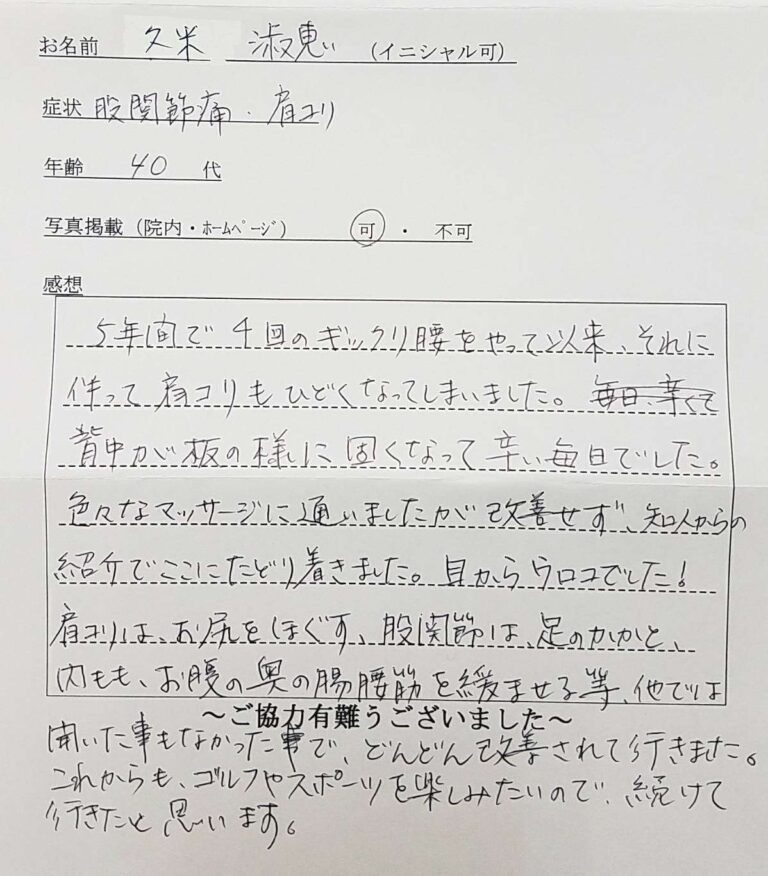 お名前 久米 淑恵 (イニシャル可)
症状 股関節痛・肩コリ
年齢 40 代
写真掲載（院内・ホームページ） 可 ・ 不可
感想
5年間で4回のギックリ腰をやって以来、それに
伴って肩コリもひどくなってしまいました。毎日、辛くて
背中が板の様に固くなって辛い毎日でした。
色々なマッサージに通いましたが改善せず、知人からの
紹介でここにたどり着きました。目からウロコでした!
肩コリは、お尻をほぐす、股関節は、足のかかと、
内もも、お腹の奥の腸腰筋を緩ませる等、他では
～ご協力有難うございました～
聞いた事もなかった事で、どんどん改善されて行きました。
これからも、ゴルフやスポーツを楽しみたいので、続けて
行きたと思います。